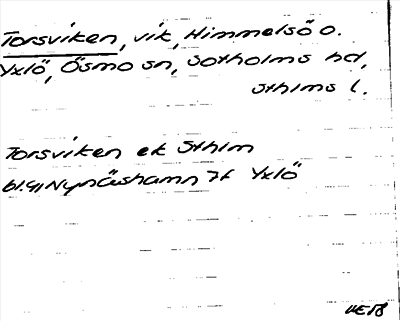 Torsviken, vik, Himmelsö o.
Yxlö, Ösmo sn, Sotholms hd,
Sthlms l.
Torsviken ek Sthlm
bl.91 Nynäshamn 7f Yxlö